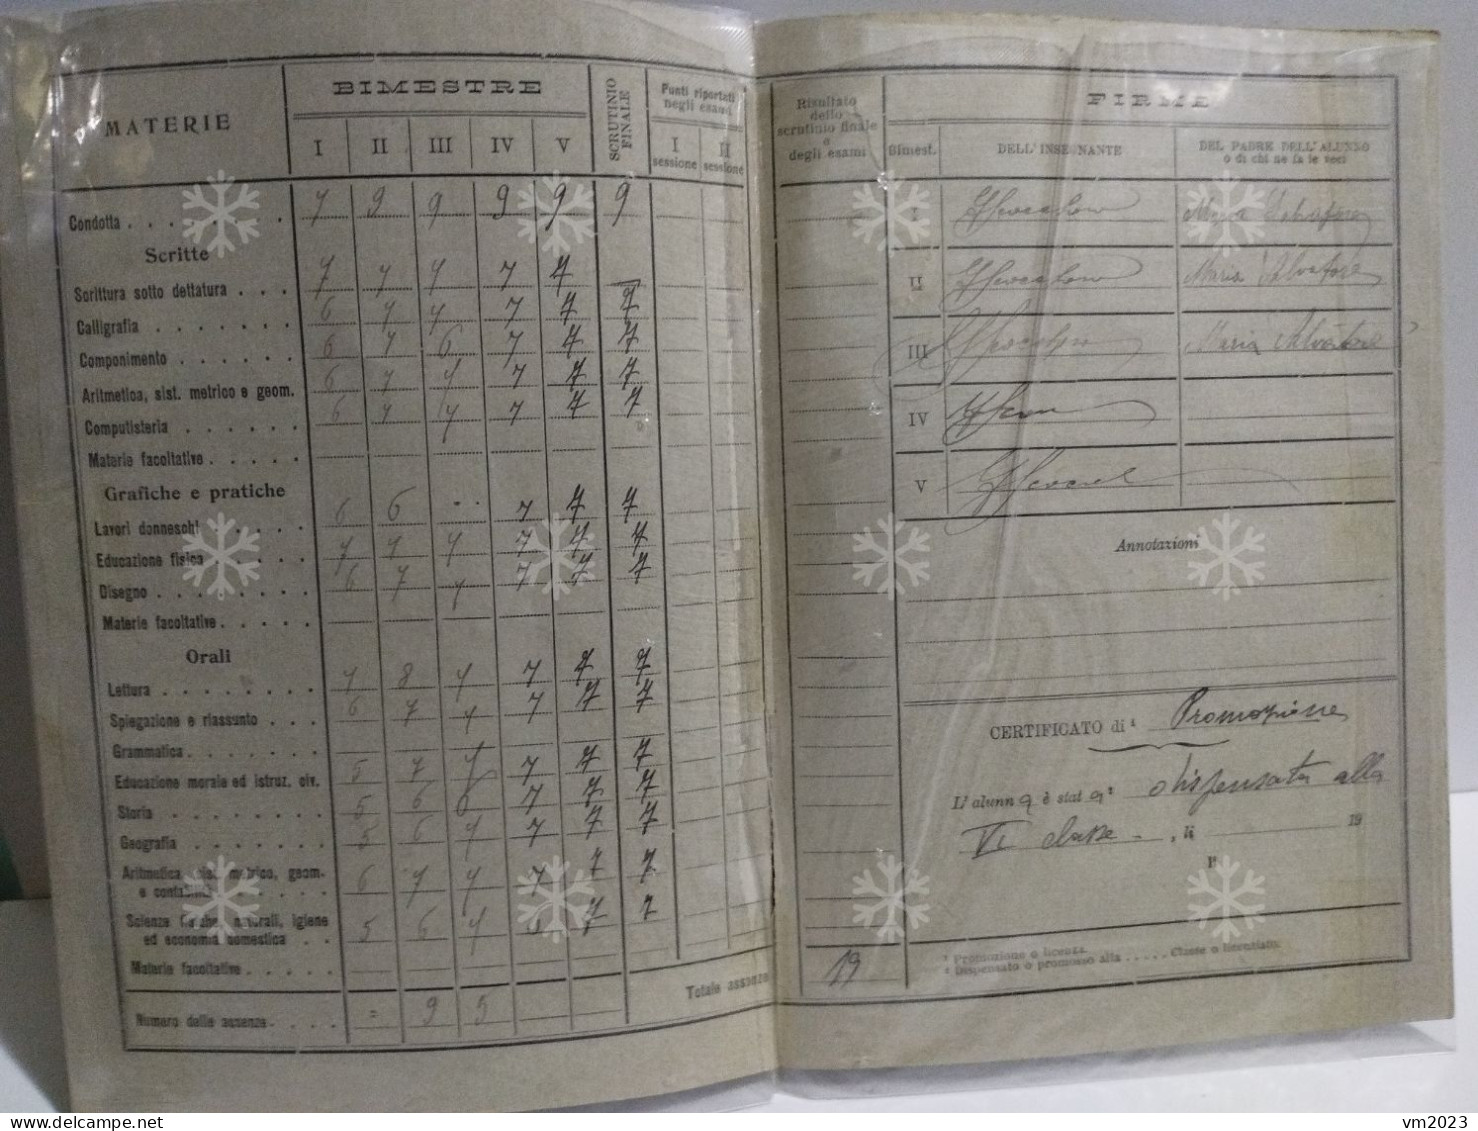 MATERIE
BIMESTRE
I II III IV V
SCRUTINIO FINALE
Punti riportati negli esami
I sessione II sessione
Condotta . . . 7 9 9 9 9 9
Scritte
Scrittura sotto dettatura . . . 7 7 7 7 7
Calligrafia . . . . . . . 6 7 7 7 7 7
Componimento . . . . . . 6 7 6 7 7 7
Aritmetica, sist. metrico e geom. 6 7 7 7 7 7
Computisteria . . . . . . 6 7 7 7 7 7
Materie facoltative . . . . .
Grafiche e pratiche
Lavori donneschi 6 6 . . 7 7 7
Educazione fisica 7 7 7 7 7 7
Disegno . . . . . . . . 6 7 7 7 7 7
Materie facoltative . . . . .
Orali
Lettura . . . . . . . . 7 8 7 7 7 7
Spiegazione e riassunto . . . 6 7 7 7 7 7
Grammatica . . . . . . .
Educazione morale ed istruz. civ. 5 7 7 7 7 7
Storia . . . . . . . . 5 6 6 7 7 7
Geografia . . . . . . . 5 6 7 7 7 7
Aritmetica, sist. metrico, geom.
e contabilità 6 7 7 7 7 7
Scienze fisiche, naturali, igiene
ed economia domestica . . 5 6 7 6 7 7
Materie facoltative . . . . .
Numero delle assenze . . . . = 9 5
Totale assenze 19
Risultato
dello
scrutinio finale
e
degli esami
FIRME
Bimest.
DELL'INSEGNANTE
DEL PADRE DELL'ALUNNO
o di chi ne fa le veci
I
II Maria Salvatore
III Maria Salvatore
IV
V
Annotazioni
CERTIFICATO di ¹ Promozione
L'alunn a è stat a ² dispensata alla
VI classe . , li 19
Il
¹ Promozione o licenza.
² Dispensato o promosso alla . . . . . Classe o licenziato.
vm2023